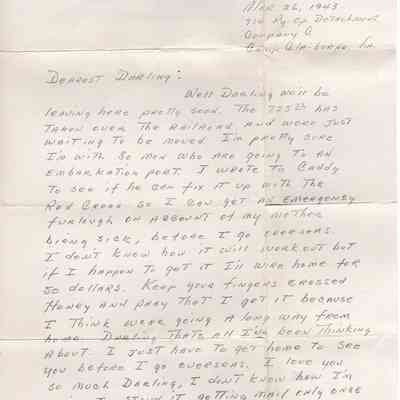 Mar 26, 1943
730 Ry. Op. Detachment
Company C
Camp Claiborne, La.
Dearest Darling:
Well Darling we'll be
leaving here pretty soon. The 725th has
taken over the railroad and were just
waiting to be moved. I'm pretty sure
I'm with 80 men who are going to an
embarkation port. I wrote to Caddy
to see if he can fix it up with the
Red Cross so I can get an emergency
furlough on account of my mother
being sick, before I go overseas.
I don't know how it will work out but
if I happen to get it I'll wire home for
50 dollars. Keep your fingers crossed
Honey and pray that I get it because
I think were going a long way from
home. Darling thats all I've been thinking
about. I just have to get home to see
you before I go overseas. I love you
so much Darling, I don't know how I'm
I stand it getting mail only once